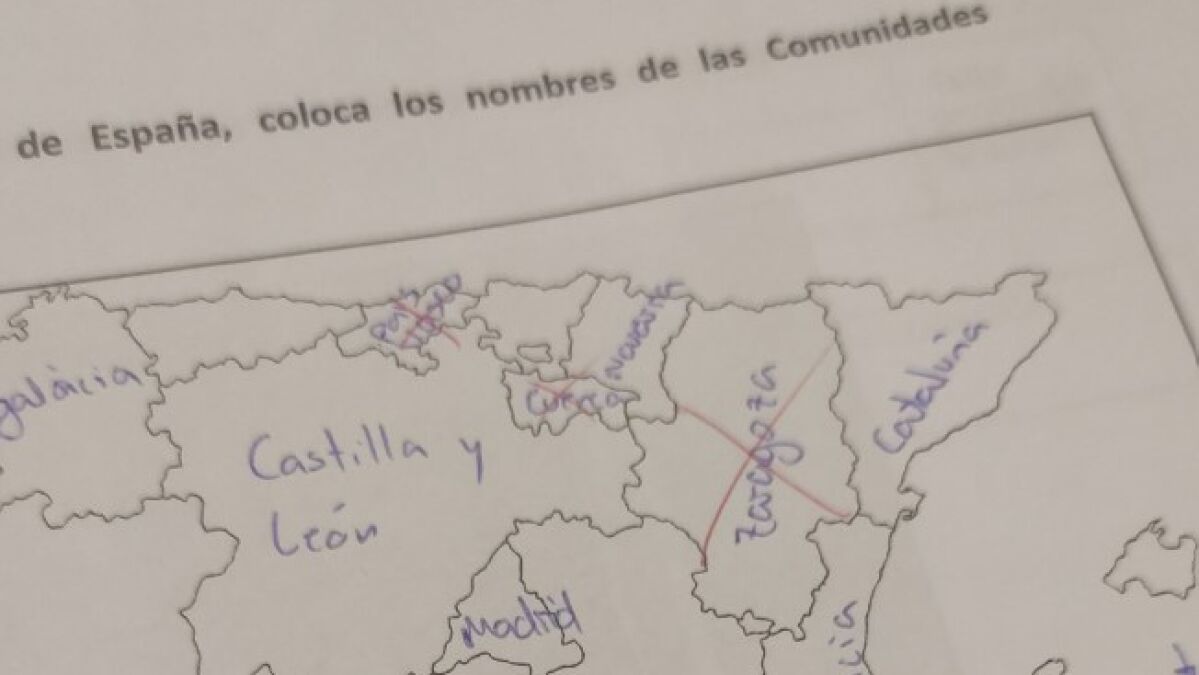 de España, coloca los nombres de las Comunidades
País
Vasco
Navarra
galàcia
Cataluña
Zaragoza
Castilla y
León
Madrid
cia